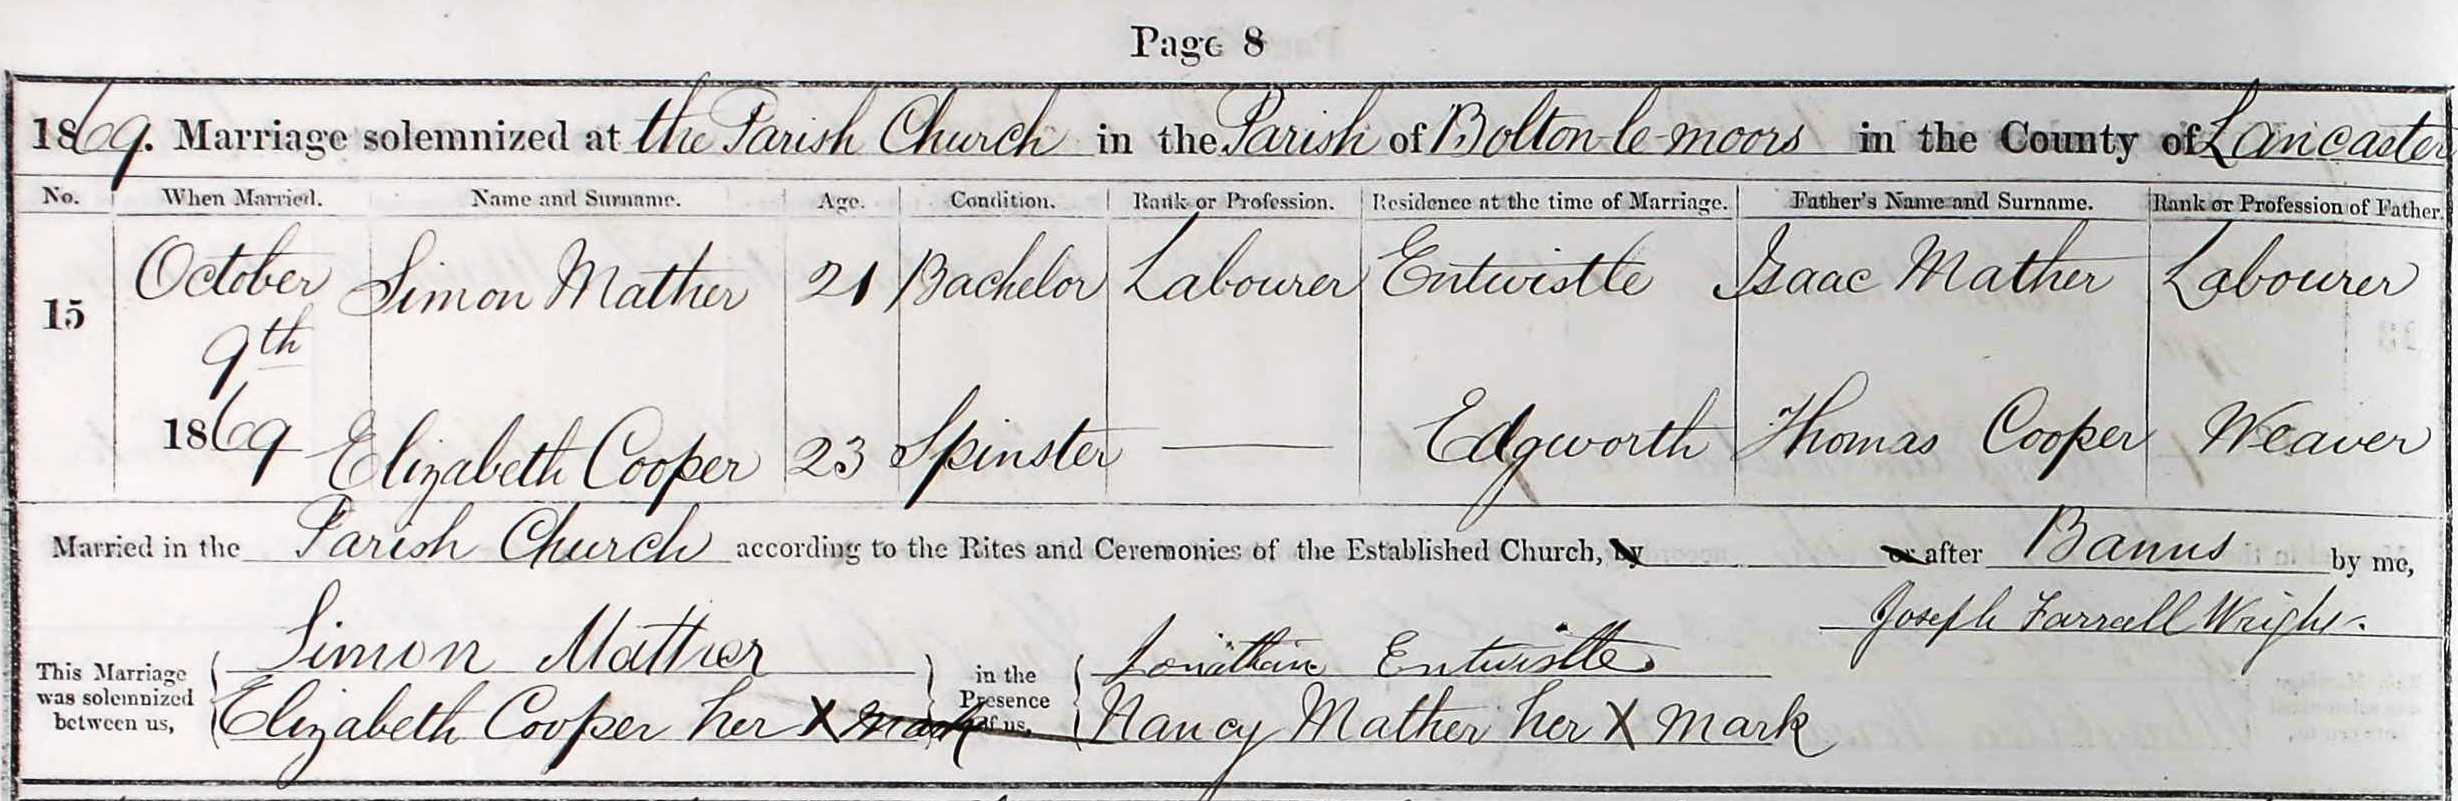 Page 8
1869. Marriage solemnized at the Parish Church in the Parish of Bolton-le-moors in the County of Lancaster
No. When Married. Name and Surname. Age. Condition. Rank or Profession. Residence at the time of Marriage. Father's Name and Surname. Rank or Profession of Father.
15 October Simon Mather 21 Bachelor Labourer Entwistle Isaac Mather Labourer
9th
1869 Elizabeth Cooper 23 Spinster — Edgworth Thomas Cooper Weaver
Married in the Parish Church according to the Rites and Ceremonies of the Established Church, by or after Banns by me,
Joseph Farrall Wright.
This Marriage was solemnized between us, Simon Mather in the Presence of us, Jonathan Entwistle
Elizabeth Cooper her X mark Nancy Mather her X mark